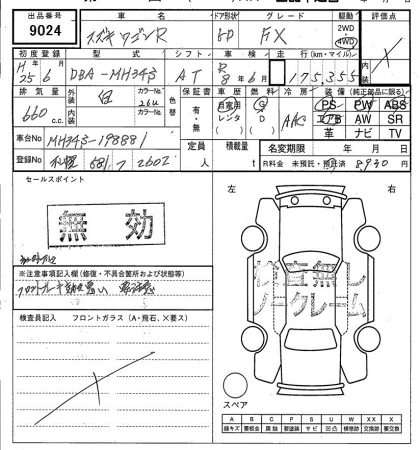 出品番号 車名 ドア形状 グレード 駆動 評価点
9024 スズキ ワゴンR 5D FX 2WD 4WD
初度登録 型式 シフト 車検 走行(km・マイル)
H25 6 DBA-MH34S AT R8年6月 175,355
排気量 外装 内装 カラーNo. カラーNo. 色替 保証書 車歴 燃料 冷房 装備(純正部品に限る)
660 c.c. 白 26U 有・無 自家用 レンタ ( ) G D ( ) AAC PS PW ABS
エアB AW SR
革 ナビ TV
車台No MH34S-198881 定員 人 積載量 t 名変期限 年 月 日
登録No 札幌 581 2602 R料金 未預託・預託済 8,930 円
セールスポイント
無効
左 右
※注意事項記入欄(修復・不具合箇所および状態等)
フロントブレーキ
検査無し
ノークレーム
検査員記入 フロントガラス(A・飛石、×要ス)
スペア
A B C P S U W X XX
線キズ 要板金 腐蝕 要塗装 サビ 凹凸 補修跡 交換跡 要交換